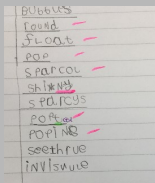 BUbbUs
round
fLOat
POP
SParcoL
ShiNNy
SParcys
POPt
POPiNg
Seethrue
iNViSuule